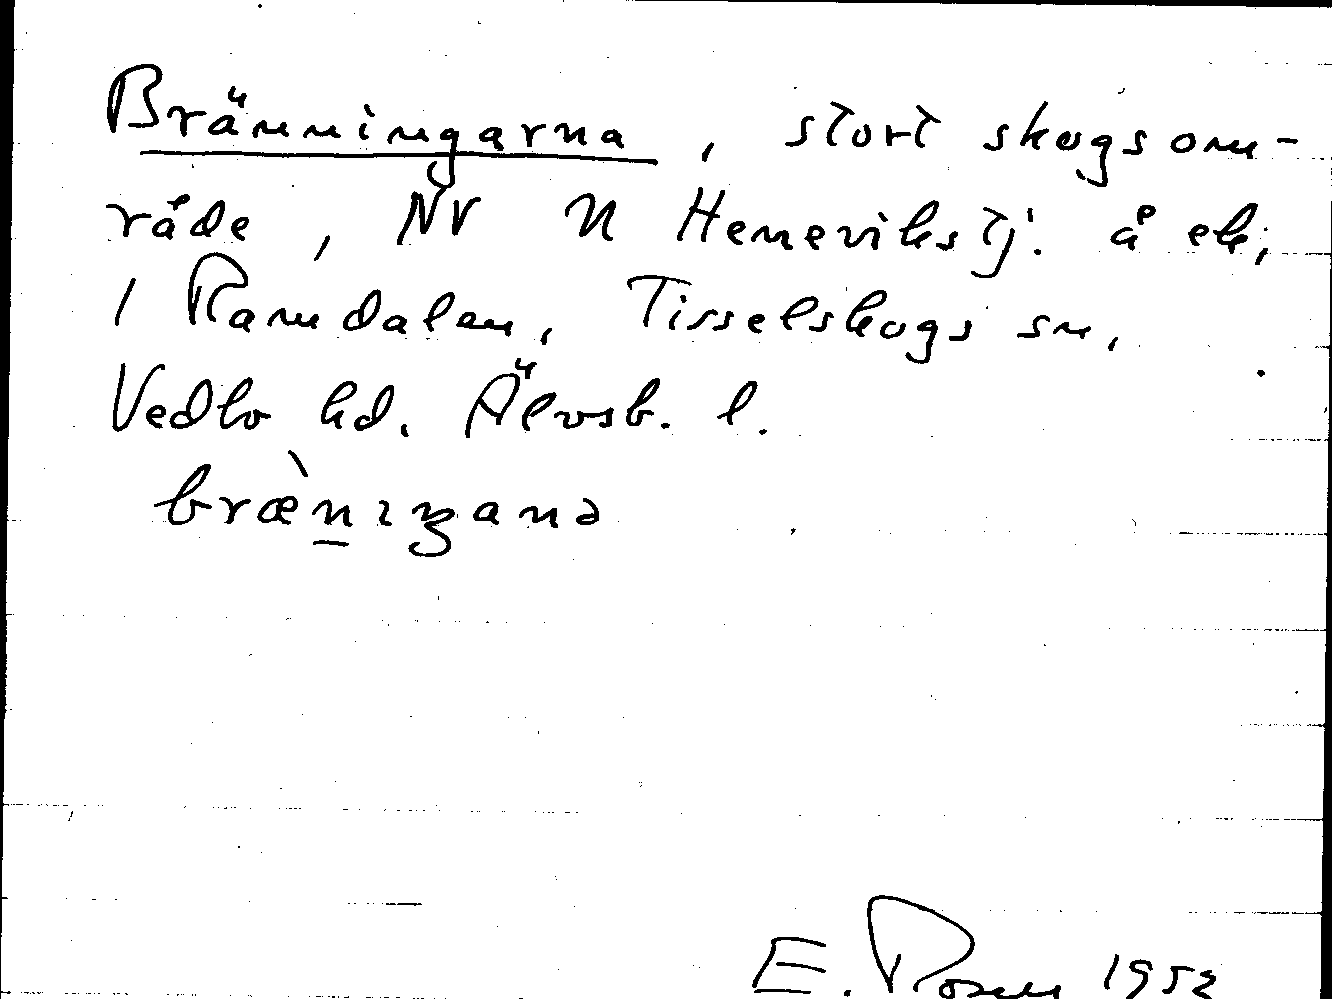 Bränningarna, stort skogsom-
råde, NV N Henevikstj. å ek,
1 Ramdalen, Tisselskogs sn,
Vedbo hd. Älvsb. l.
bræ̀nıŋana
E. Rosen 1952